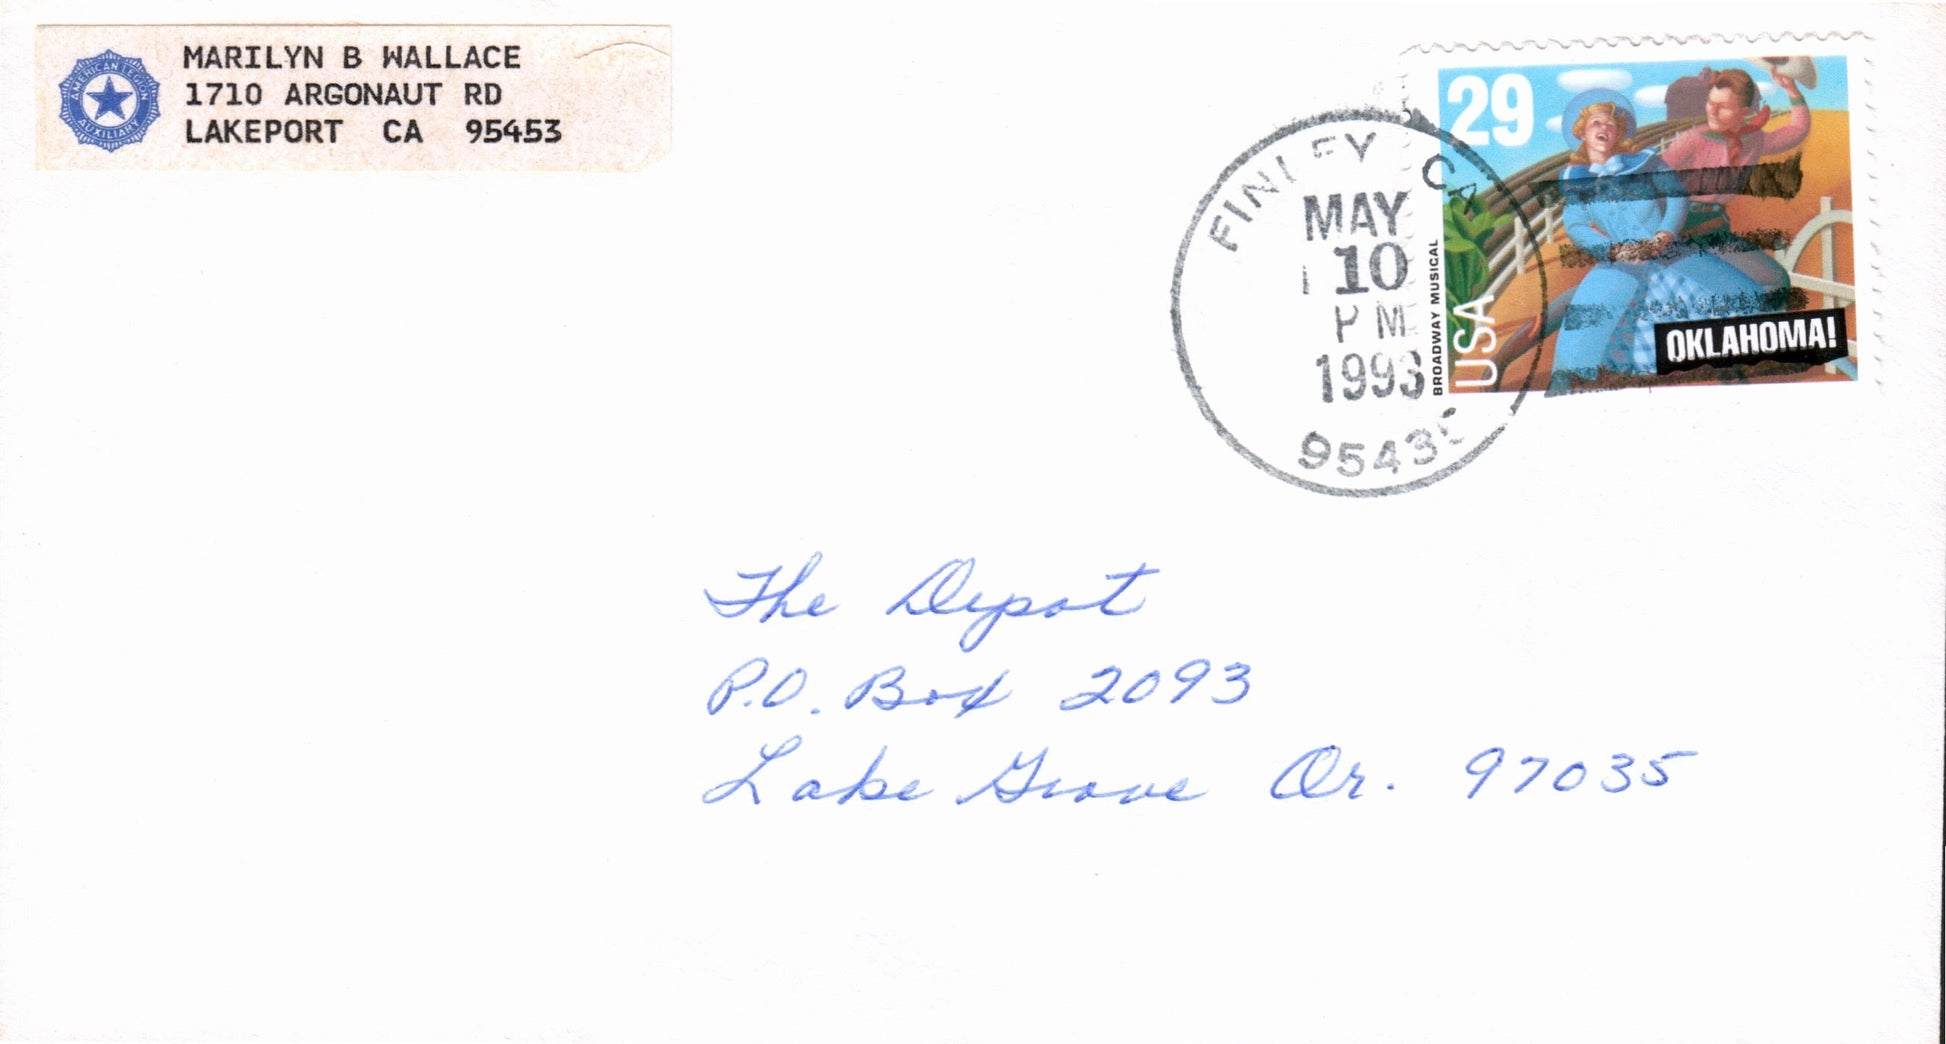 AMERICAN LEGION
AUXILIARY
MARILYN B WALLACE
1710 ARGONAUT RD
LAKEPORT CA 95453
FINLEY CA
MAY
10
PM
1993
9543
29
BROADWAY MUSICAL
USA
OKLAHOMA!
The Depot
P.O. Box 2093
Lake Grove Or. 97035